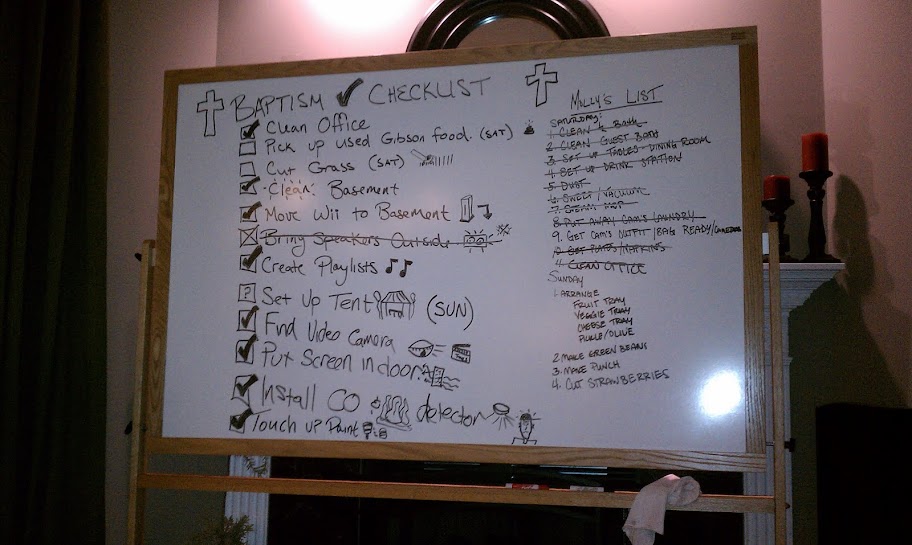 BAPTISM ✓ CHECKLIST
Clean Office
Pick up used Gibson food. (SAT)
Cut Grass (SAT)
Clean Basement
Move Wii to Basement
Bring Speakers Outside
Create Playlists
? Set Up Tent (SUN)
Find Video Camera
Put Screen in door
Install CO detector
Touch up Paint
MOLLY'S LIST
SATURDAY:
1. CLEAN ½ BATH
2. CLEAN GUEST BATH
3. SET UP TABLES DINING ROOM
4. SET UP DRINK STATION
5. DUST
6. SWEEP/VACUUM
7. STEAM MOP
8. PUT AWAY CAM'S LAUNDRY
9. GET CAM'S OUTFIT/BAG READY/CAMERAS
GET PLATES/NAPKINS
CLEAN OFFICE
SUNDAY
1. ARRANGE
FRUIT TRAY
VEGGIE TRAY
CHEESE TRAY
PICKLE/OLIVE
2. MAKE GREEN BEANS
3. MAKE PUNCH
4. CUT STRAWBERRIES